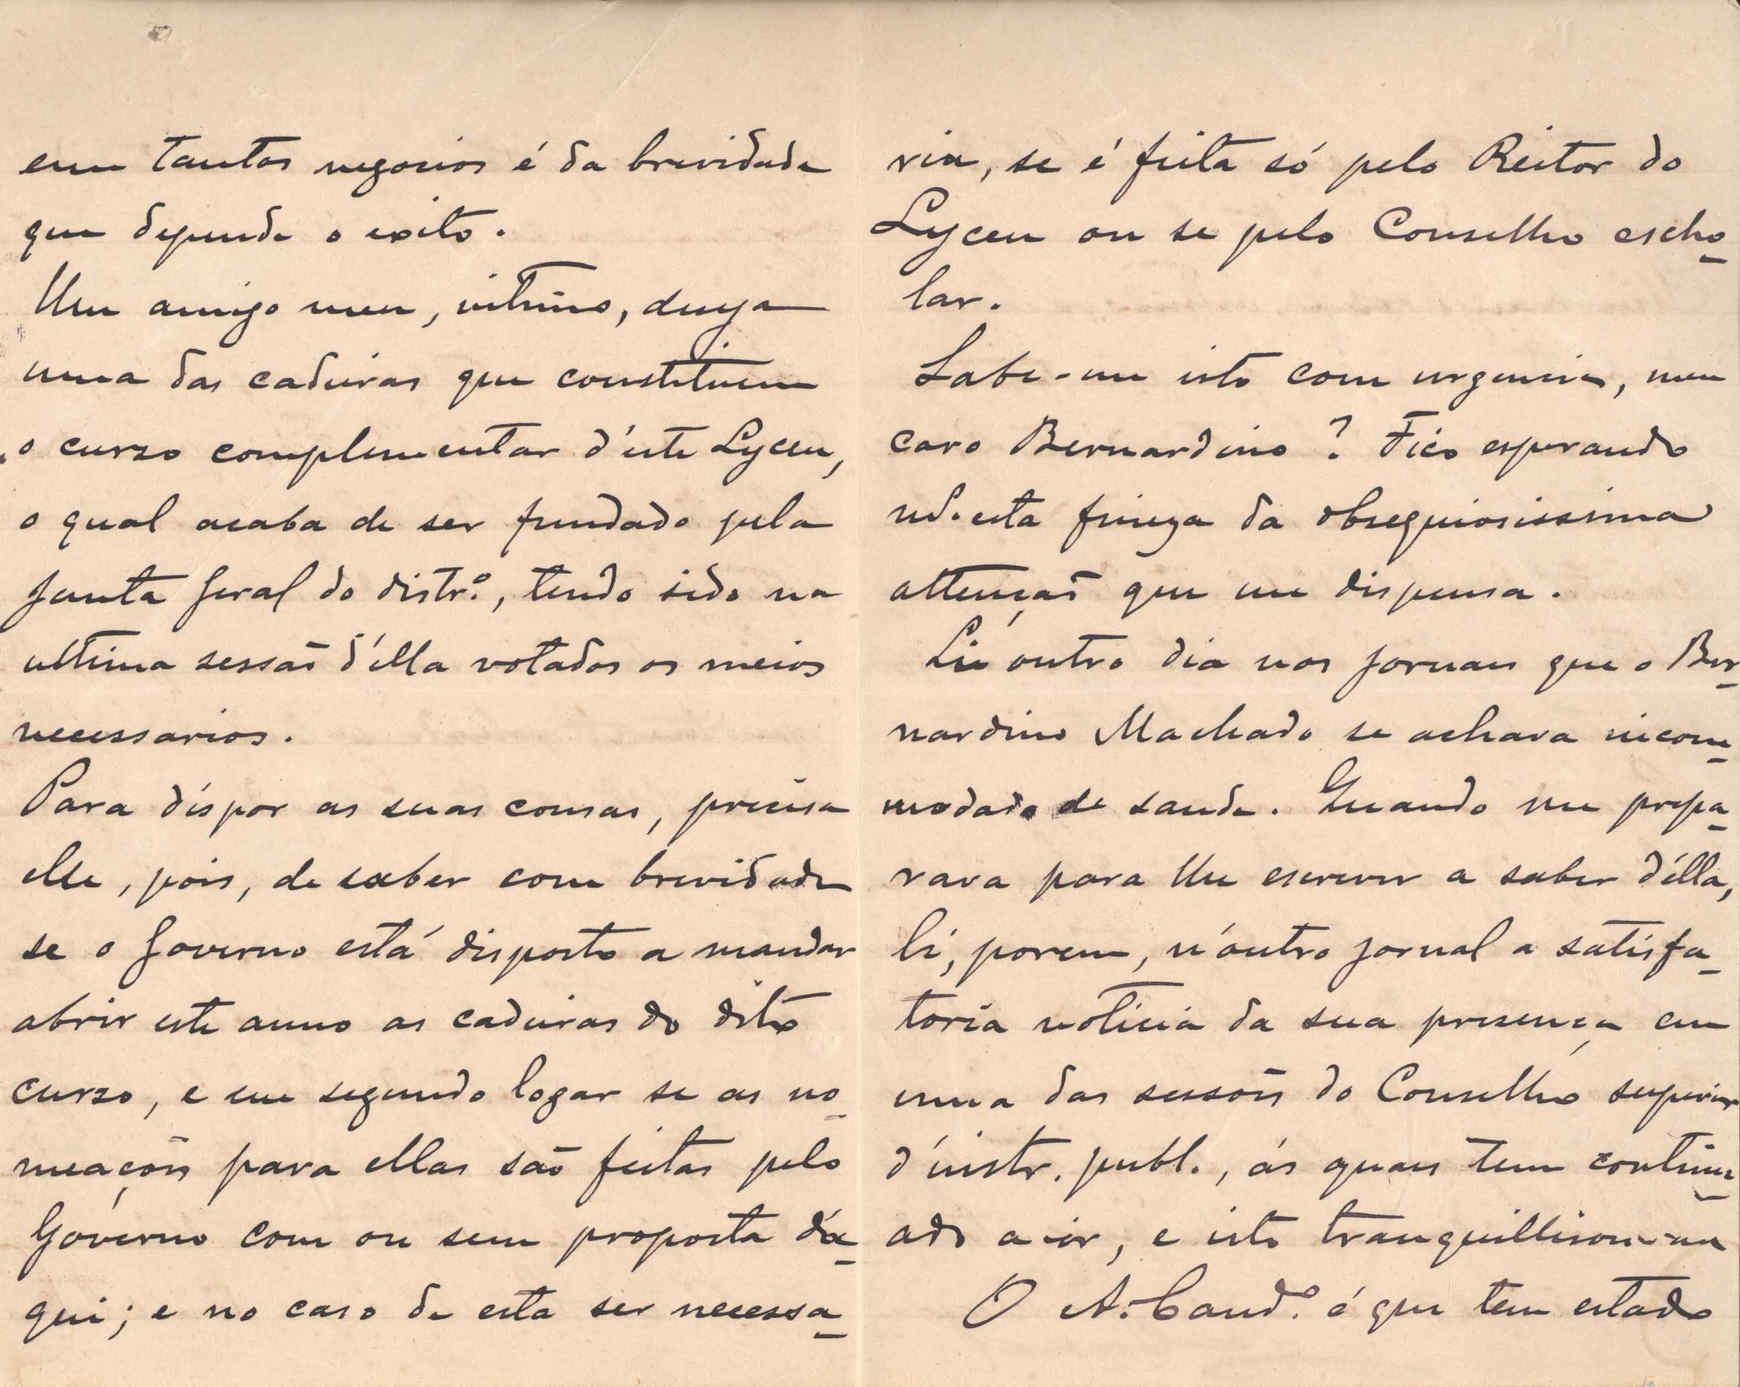 em tantos negocios é da brevidade
que depende o exito.
Um amigo meu, intimo, deseja
uma das cadeiras que constituem
o curso complementar d'este Lyceu,
o qual acaba de ser fundado pela
Junta Geral do distr.º, tendo sido na
ultima sessão d'ella votados os meios
necessarios.
Para dispor as suas cousas, precisa
elle, pois, de saber com brevidade
se o Governo está disposto a mandar
abrir este anno as cadeiras do dito
curso, e em segundo logar se as no-
meações para ellas são feitas pelo
Governo com ou sem proposta da-
qui; e no caso de esta ser necessa-
ria, se é feita só pelo Reitor do
Lyceu ou se pelo Conselho escho-
lar.
Sabe-me isto com urgencia, meu
caro Bernardino? Fico esperando
esta fineza da obsequiosissima
attenção que me dispensa.
Li outro dia nos jornaes que o Ber-
nardino Machado se achava incom-
modado de saude. Quando me prepa-
rava para lhe escrever a saber d'ella,
li, porem, n'outro jornal a satisfa-
toria noticia da sua presença em
uma das sessões do Conselho superior
d'instr. publ., ás quaes tem continu-
ado a ir, e isto tranquillisou-me
O A. Cand.º é que tem estado